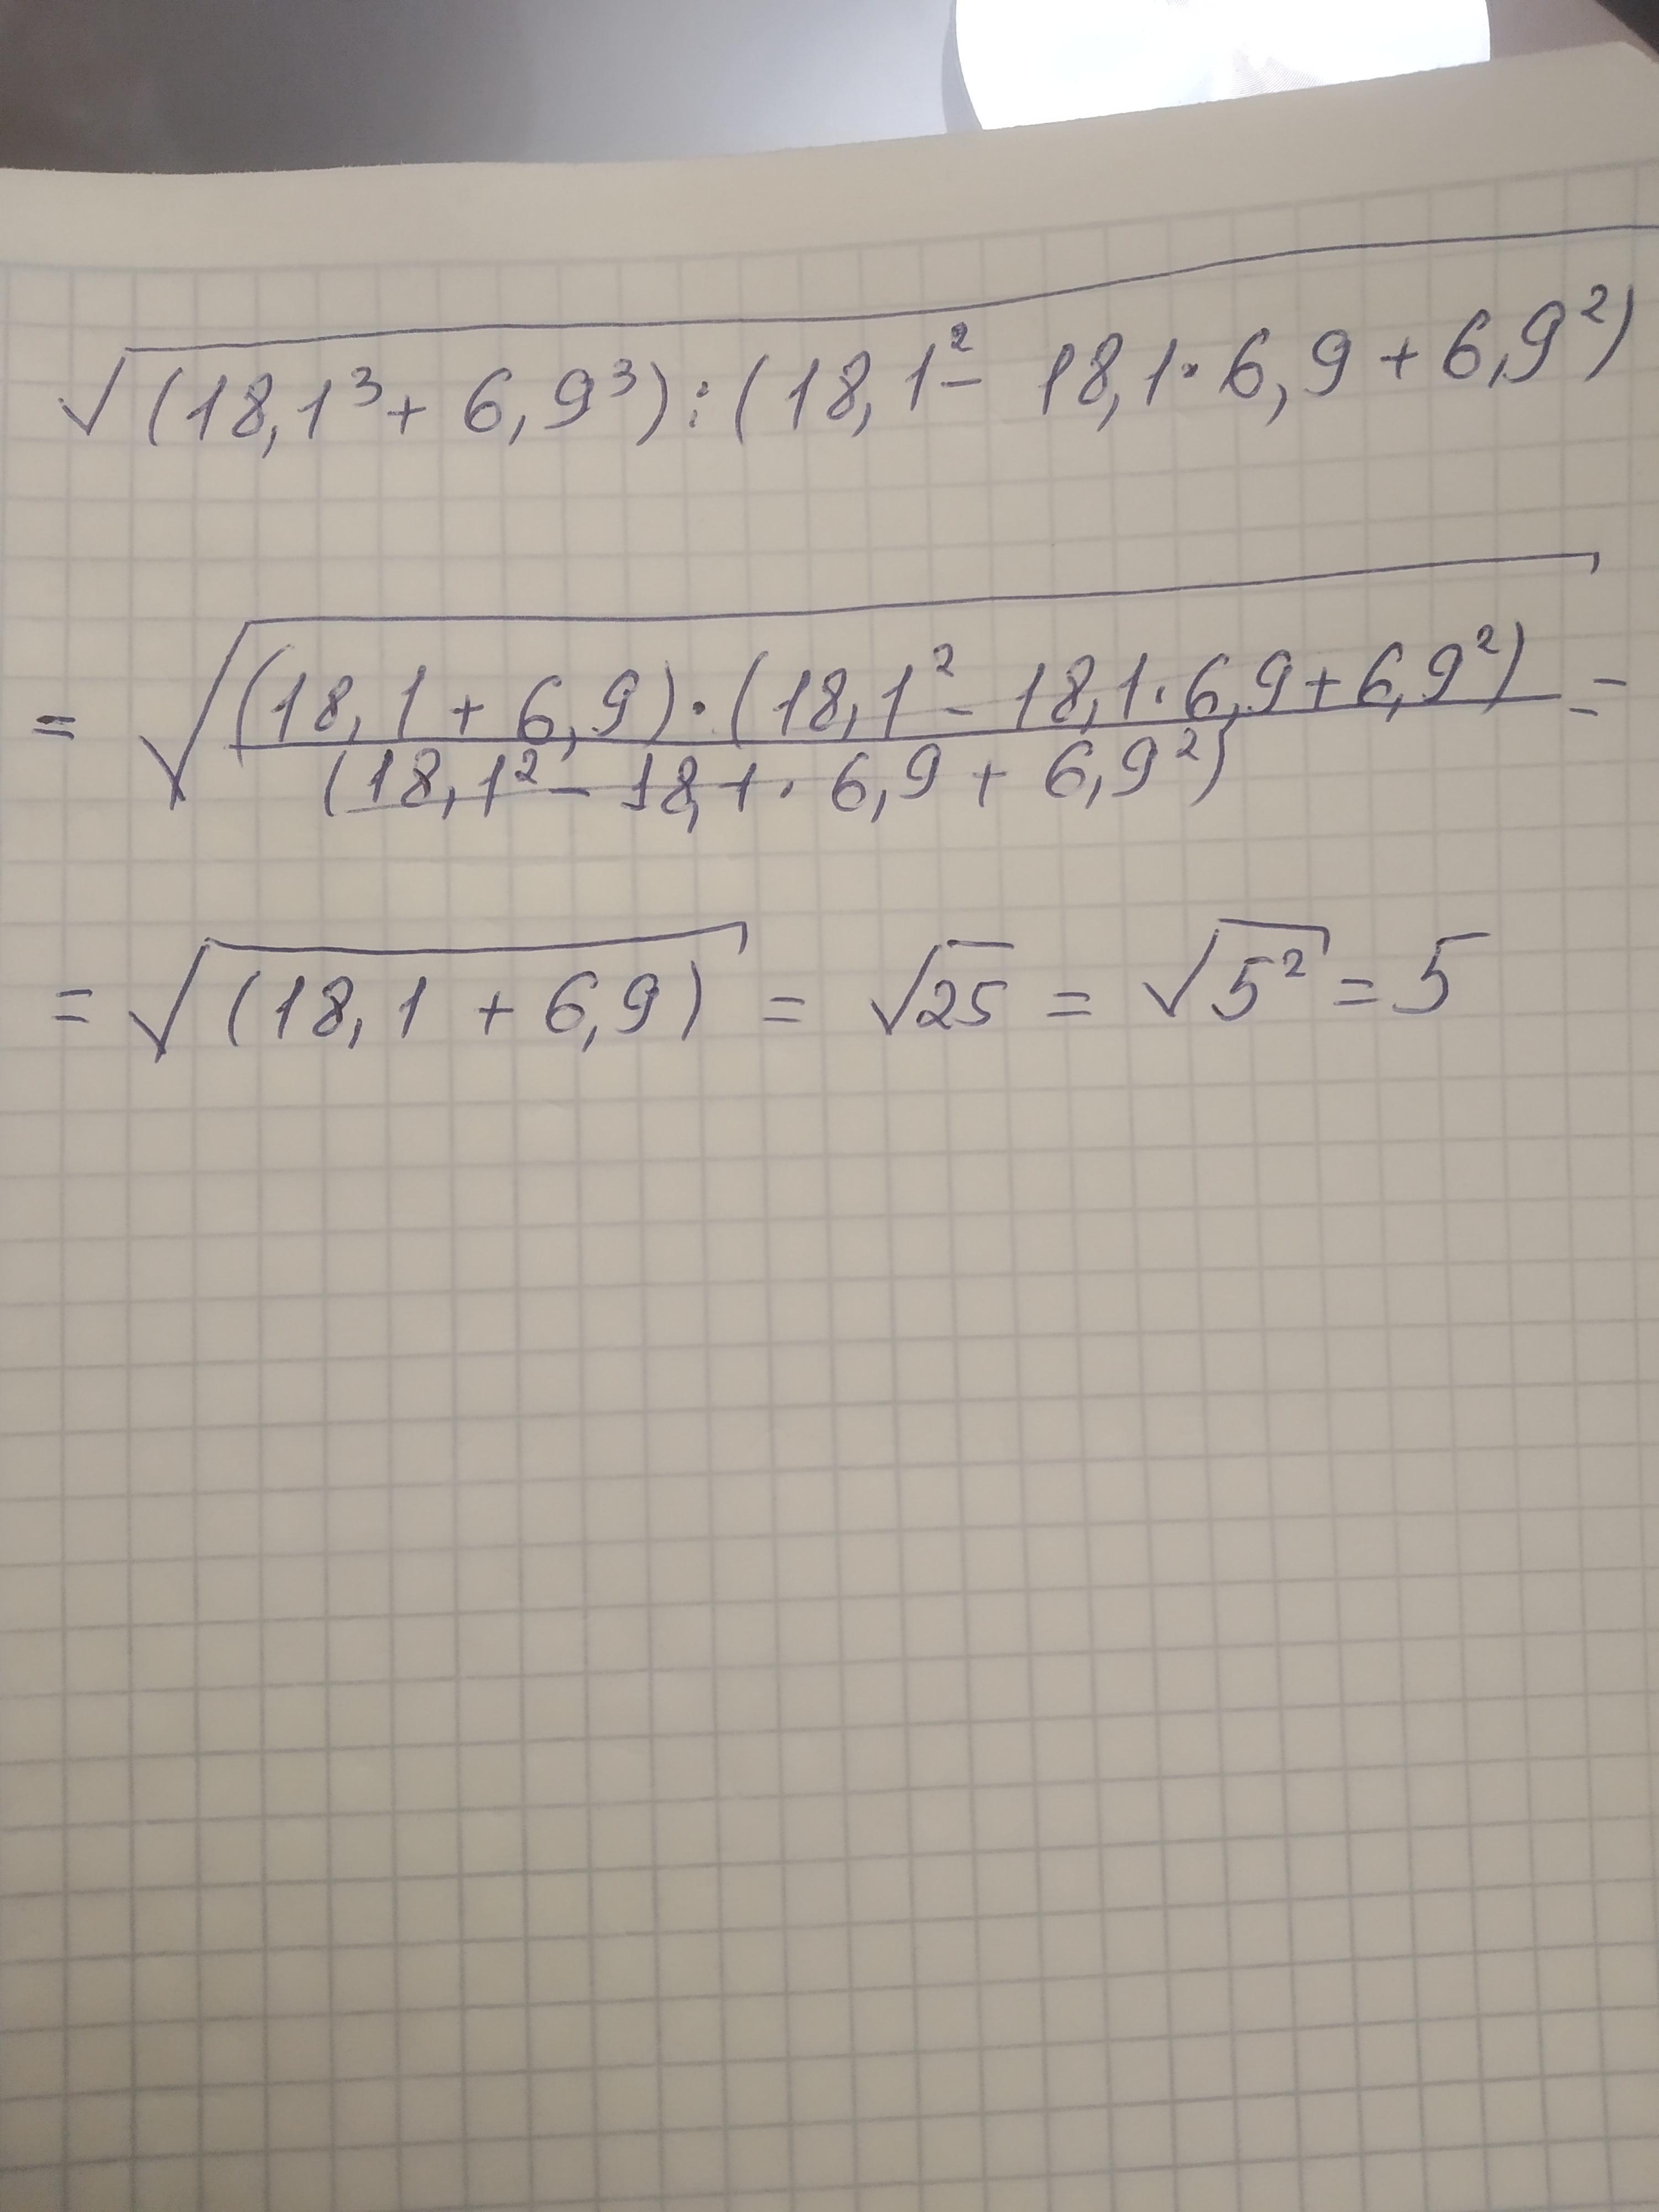 √(18,1³ + 6,9³) : (18,1² - 18,1 · 6,9 + 6,9²)
= √(18,1 + 6,9) · (18,1² - 18,1 · 6,9 + 6,9²) =
(18,1² - 18,1 · 6,9 + 6,9²)
= √(18,1 + 6,9) = √25 = √5² = 5